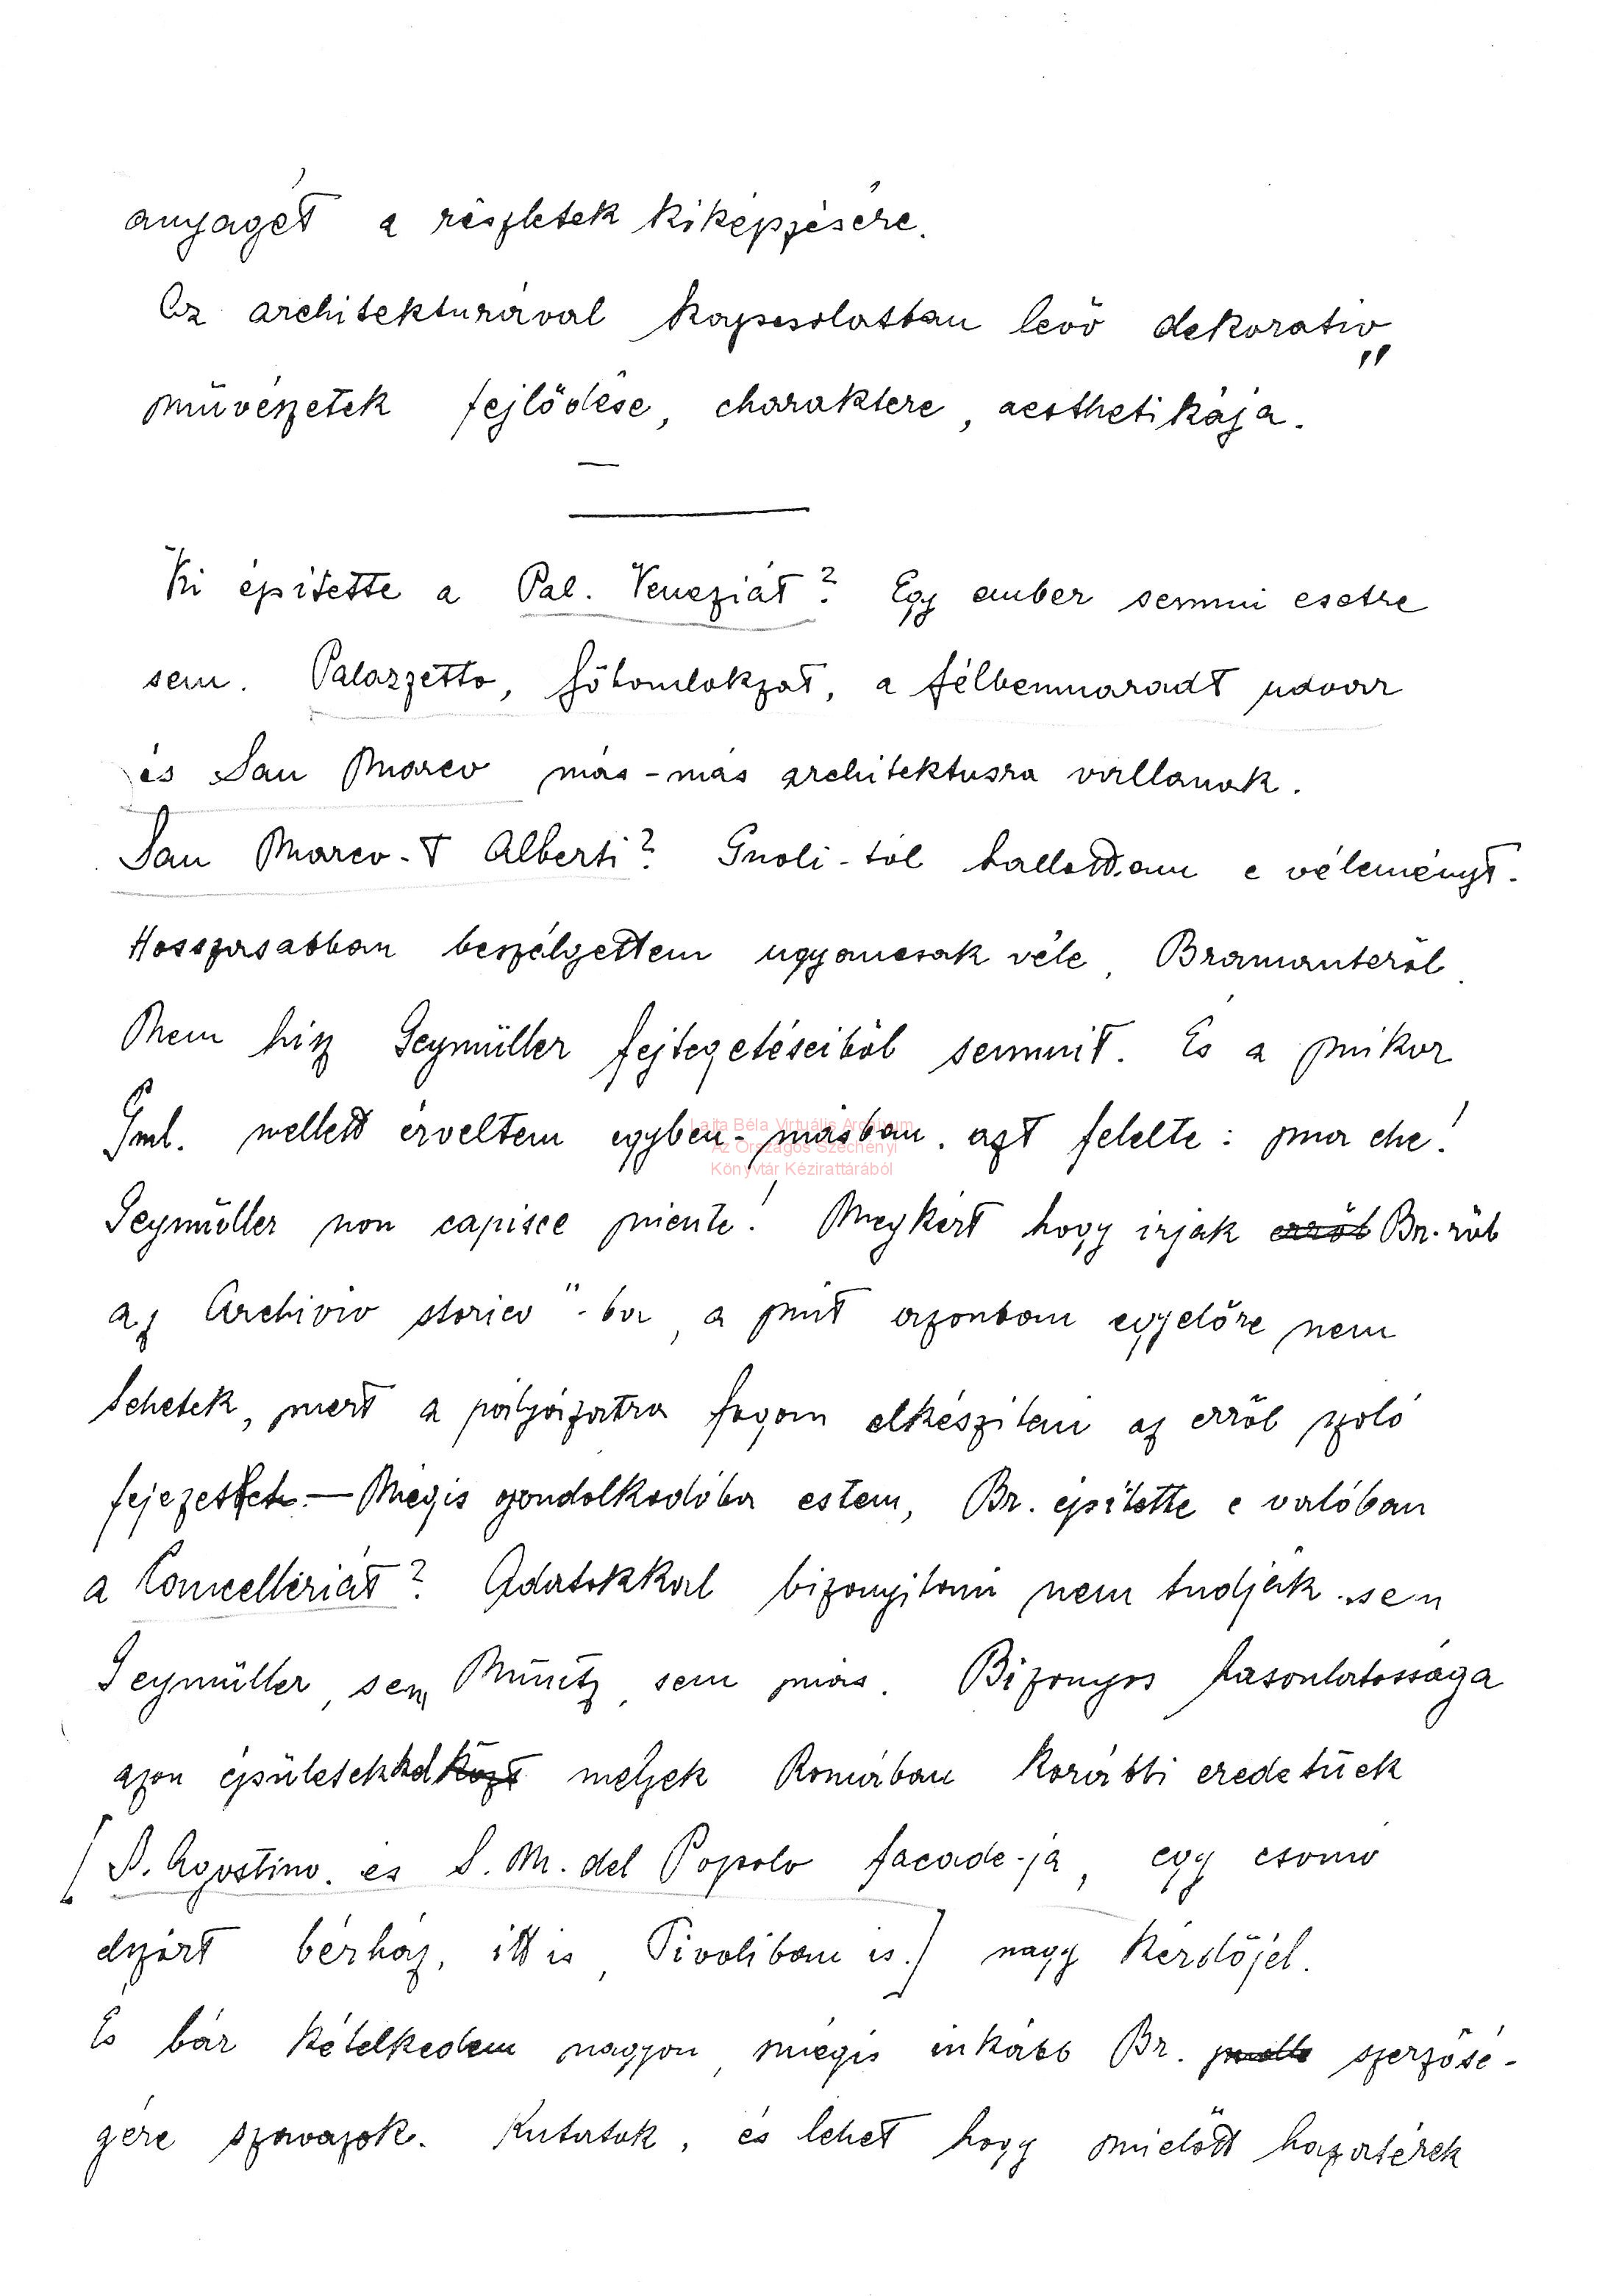 anyagét a részletek kiképzésére.
Az architekturával kapcsolatban levő dekorativ
művészetek fejlődése, charaktere, aesthetikája."
Ki épitette a Pal. Veneziát? Egy ember semmi esetre
sem. Palazzetto, főhomlokzat, a félbenmaradt udvar
és San Marco más-más architektusra vallanak.
San Marco-t Alberti? Gnoli-tól hallottam e véleményt.
Hosszasabban beszélgettem ugyancsak véle, Bramanteról.
Nem hisz Geymüller fejtegetéseiből semmit. És a mikor
Gml. mellett érveltem egyben-másban, azt felelte: ma che!
Geymüller non capisce niente! Megkért hogy irjak erről Br. ról
az Archivio storico"-ba, a mit azonban egyelőre nem
tehetek, mert a pályázatra fogom elkésziteni az erről szoló
fejezetet. — Mégis gondolkodóba estem, Br. épitette e valóban
a Cancelleriát? Adatokkal bizonyitani nem tudják sem
Geymüller, sem Müntz, sem más. Bizonyos hasonlatossága
azon épületekkel közt melyek Romában korábbi eredetűek
[S. Agostino. és S. M. del Popolo facade-ja, egy csomó
bérház, itt is, Tivoliban is.] nagy kérdőjel.
És bár kételkedem nagyon, mégis inkább Br. szerzősé-
gére szavazok. Kutatok, és lehet hogy mielőtt hazatérek
Lajta Béla Virtuális Archívum
Az Országos Széchényi
Könyvtár Kézirattárából